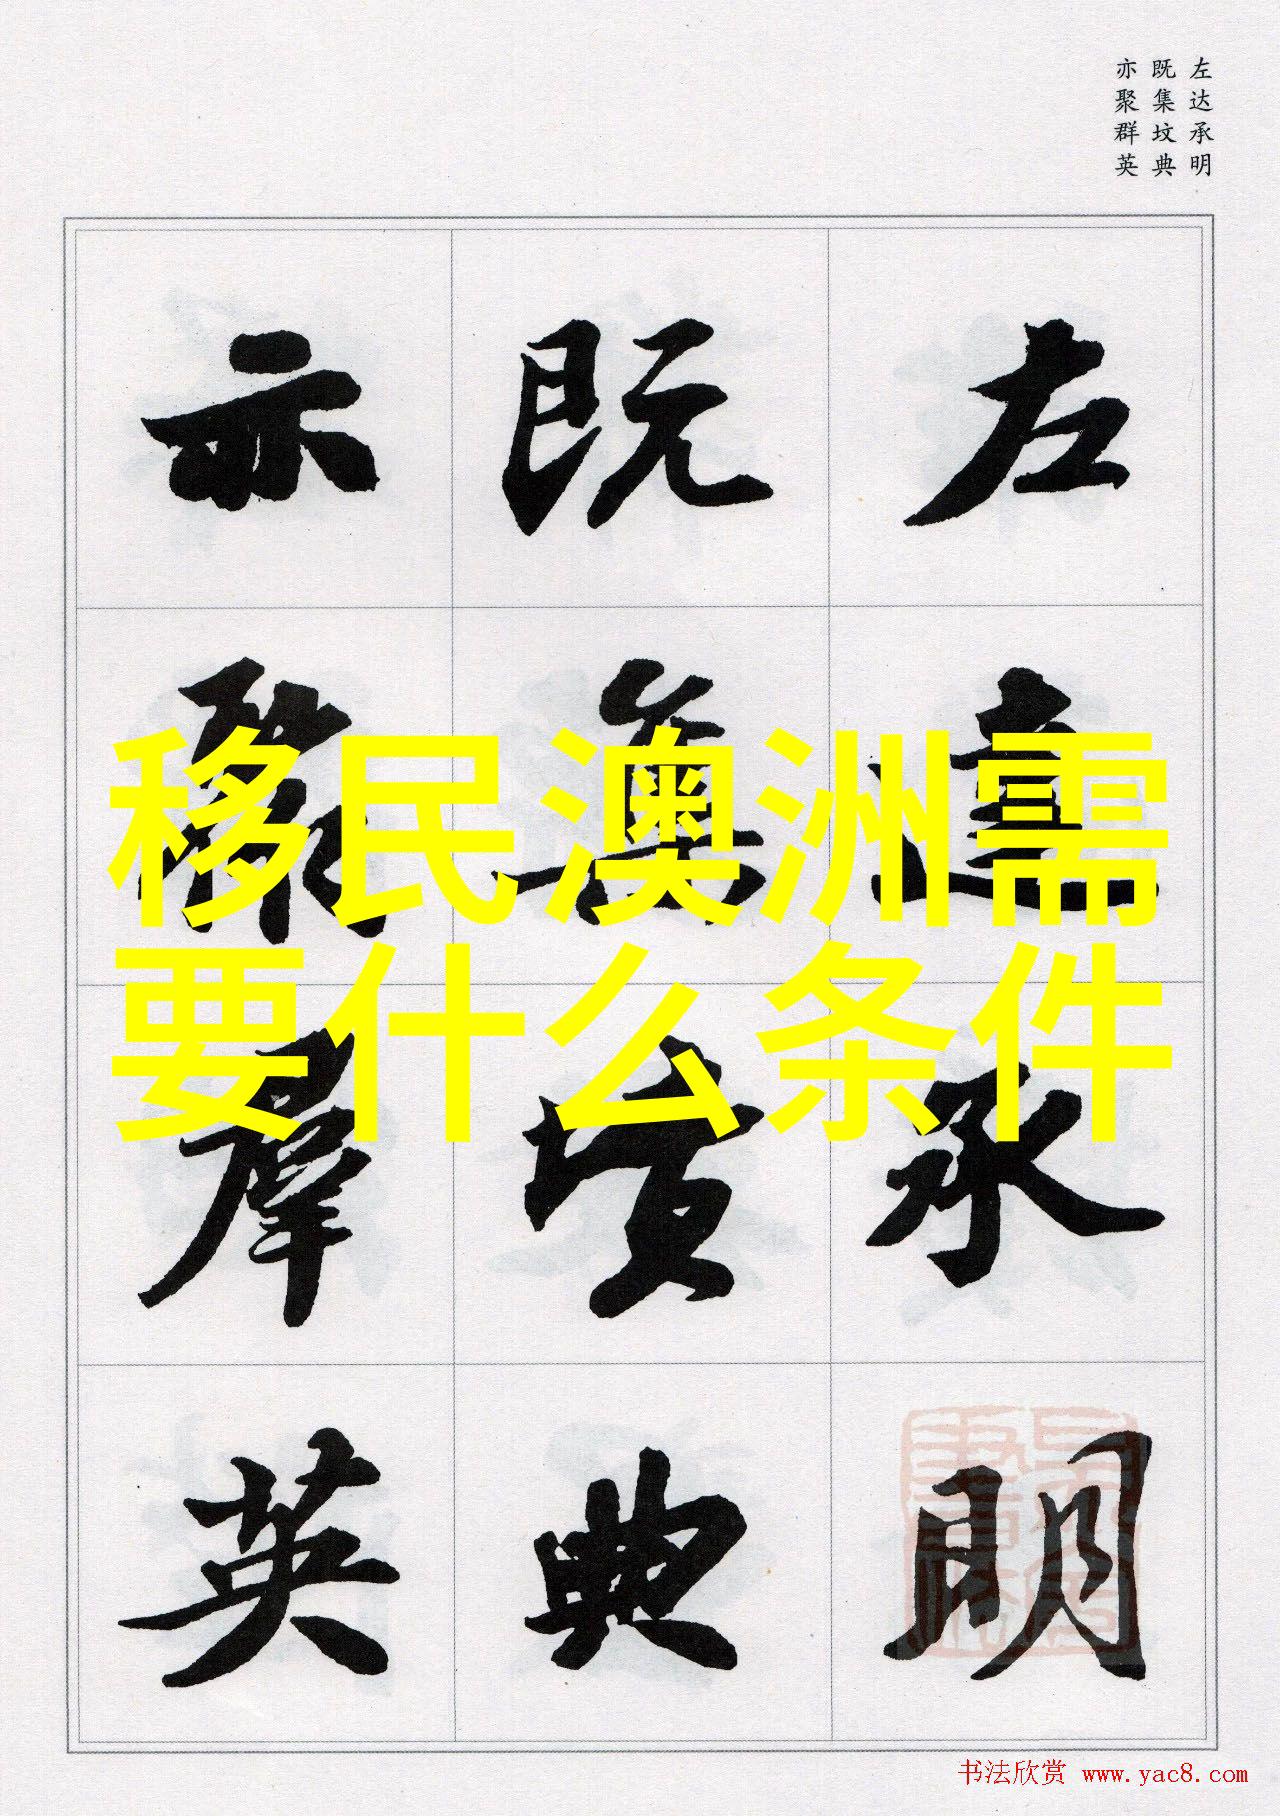 左达承明
既集坟典
亦聚群英
左達承明
既集墳典
亦聚羣英
移民澳洲需
要什么条件
书法欣赏 www.yac8.com